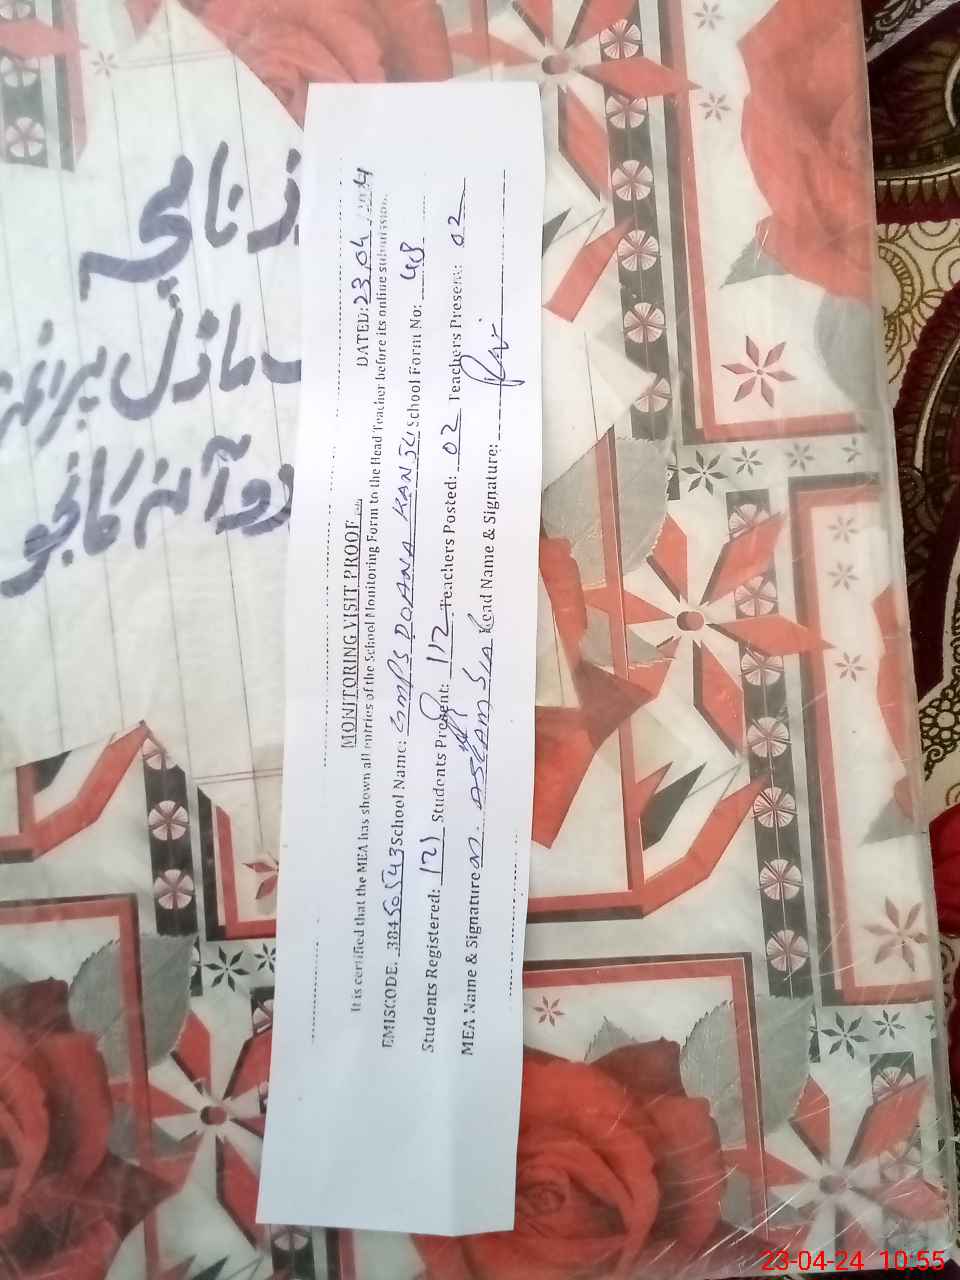 زنامچہ
ماڈل پرائمر
آنہ کانجو
MONITORING VISIT PROOF
DATED: 23.04.2024
It is certified that the MEA has shown all entries of the School Monitoring Form to the Head Teacher before its online submission.
EMISCODE: 38456543 School Name: GMPS DOANA KANJU School Form No: 48
Students Registered: 121 Students Present: 112 Teachers Posted: 02 Teachers Present: 02
MEA Name & Signature M. ASLAM SIAL Head Name & Signature:
23-04-24 10:55